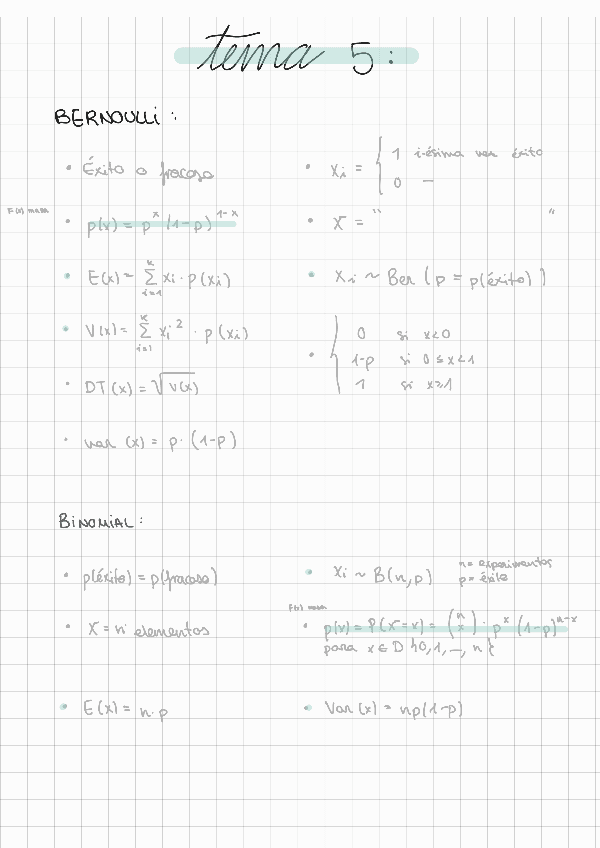 tema 5:
BERNOULLI:
• Éxito o fracaso
• Xi = { 1 i-ésima vez éxito
0 —
F(x) masa
• p(x) = p^x (1-p)^{1-x}
• X = " "
• E(x) = Σ_{i=1}^{k} xi · p(xi)
• Xi ~ Ber (p = p(éxito))
• V(x) = Σ_{i=1}^{k} xi² · p(xi)
• { 0 si x<0
1-p si 0≤x<1
1 si x≥1
• DT(x) = √V(x)
• var (x) = p · (1-p)
BINOMIAL:
• p(éxito) = p(fracaso)
• Xi ~ B(n,p)
n= experimentos
p= éxito
• X = nº elementos
F(x) masa
• p(x) = P(X=x) = (n x) · p^x (1-p)^{n-x}
para x ∈ D {0,1,—, n}
• E(x) = n·p
• Var (x) = np(1-p)